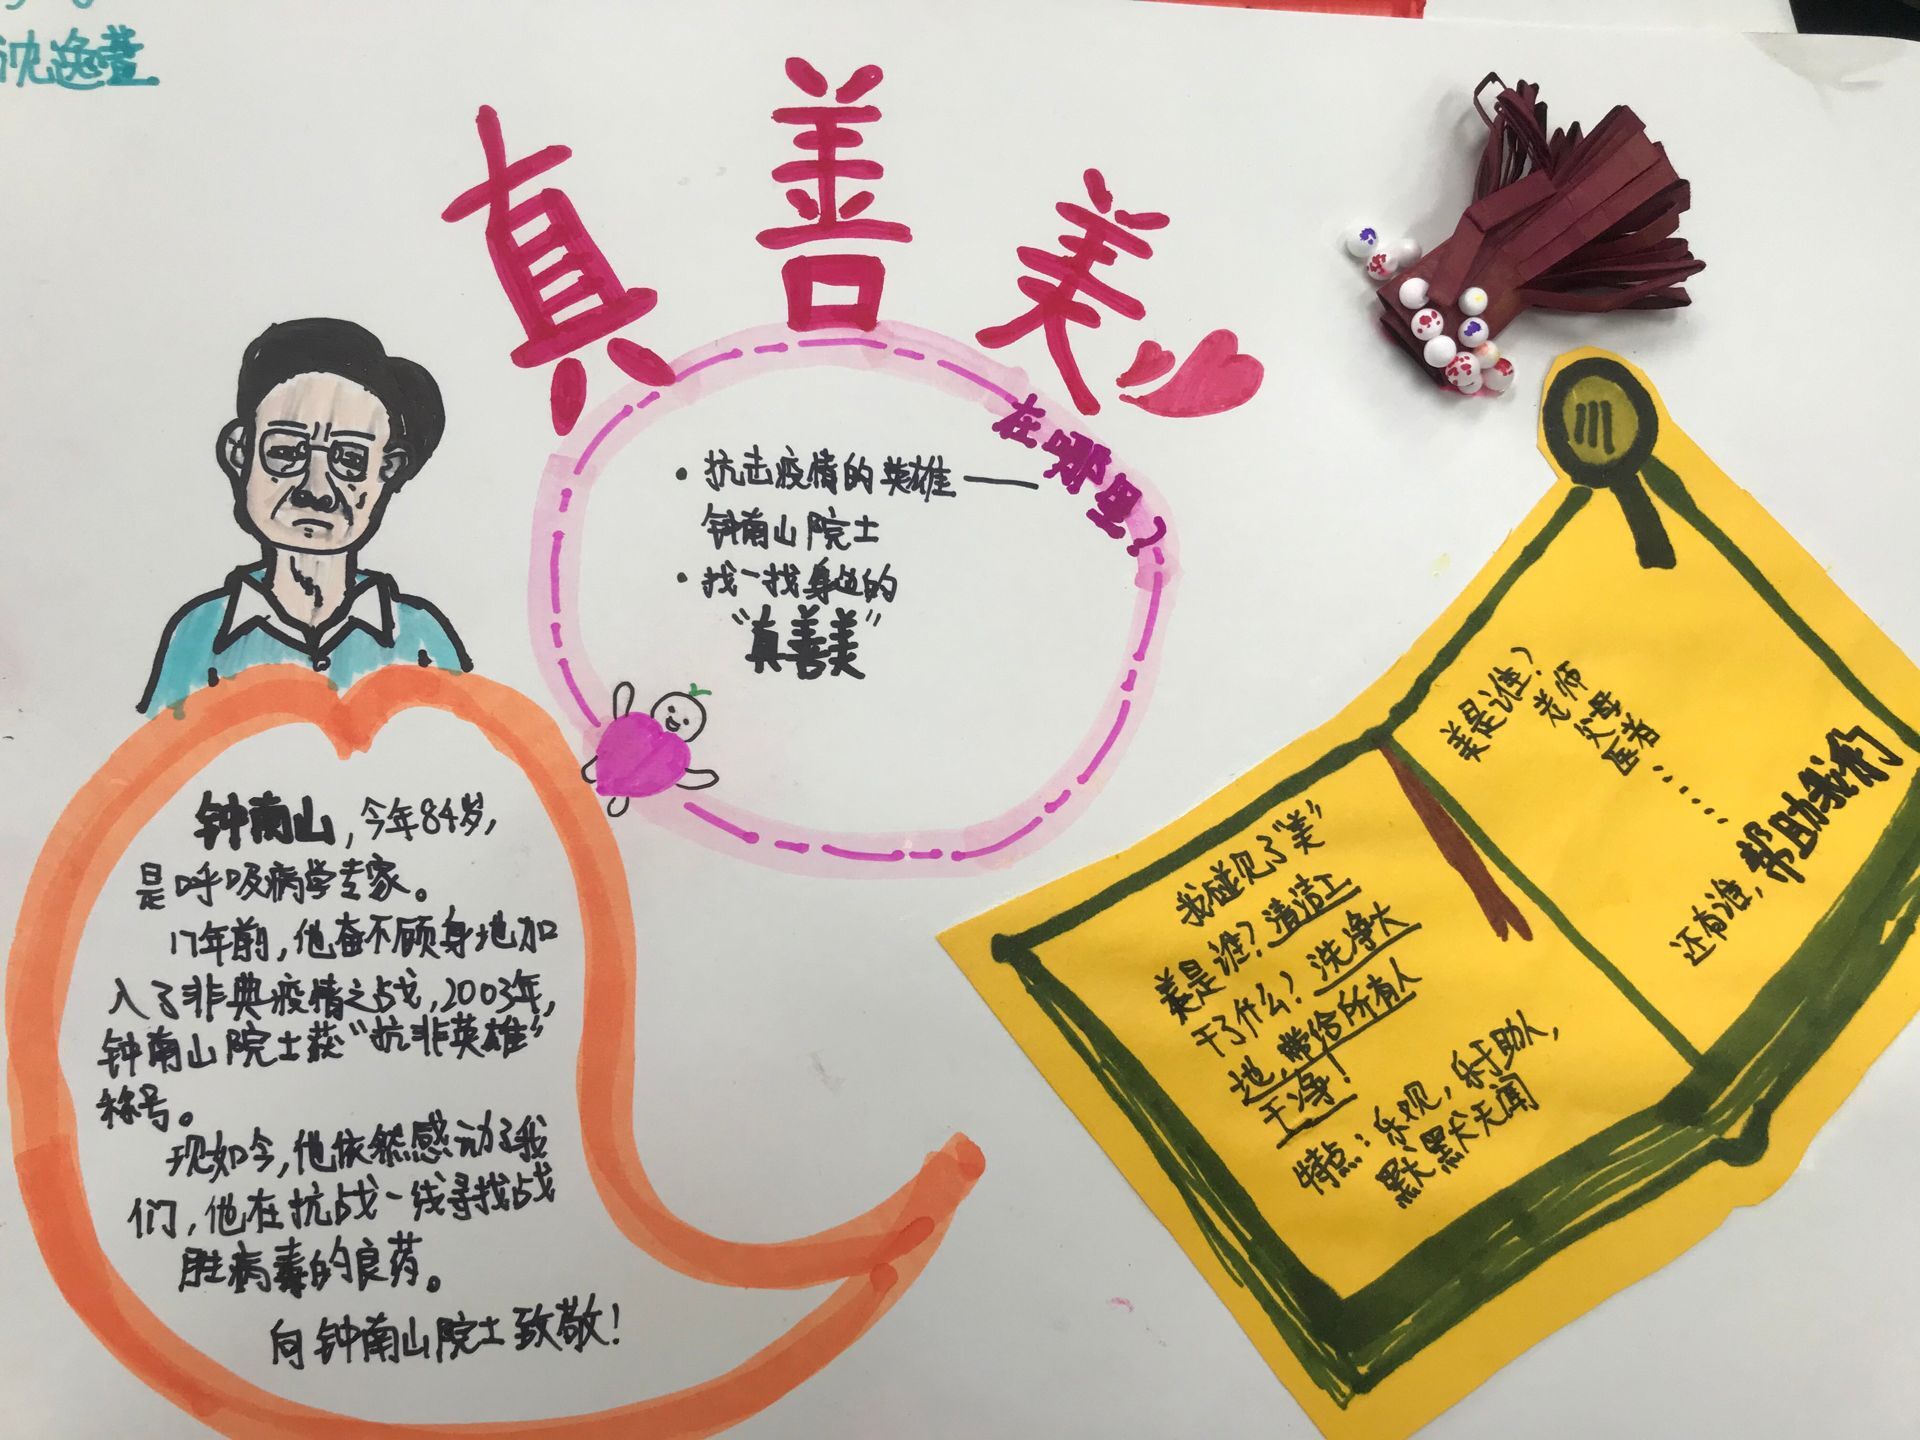 沈逸萱
真善美
在哪里?
·抗击疫情的英雄——
钟南山院士
·找一找身边的
“真善美”
钟南山,今年84岁,
是呼吸病学专家。
17年前,他奋不顾身地加
入了非典疫情之战,2003年,
钟南山院士获“抗非英雄”
称号。
现如今,他依然感动了我
们,他在抗战一线寻找战
胜病毒的良药。
向钟南山院士致敬!
我碰见了“美”
美是谁?清洁工
干了什么?洗净大
地,带给所有人
干净!
特点:乐观,乐于助人,
默默无闻
美是谁?
老师
父母
医者
……
还有谁,帮助我们